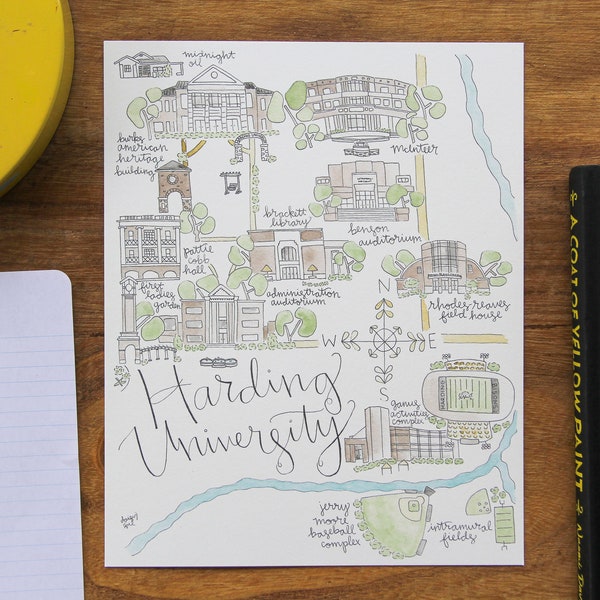 midnight
oil
burks
american
heritage
building
McInteer
brackett
library
benson
auditorium
pattie
cobb
hall
first
ladies
garden
administration
auditorium
rhodes-reaves
field house
N
W
E
S
Harding
University
ganus
activities
complex
HARDING
jerry
moore
baseball
complex
intramural
fields
A COAT OF YELLOW PAINT